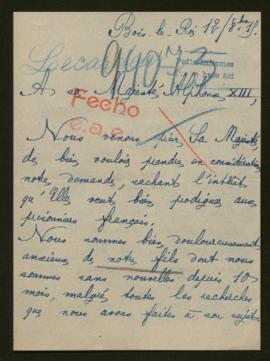 Bois le Roi 12/8bre 15
Lecas
94073
A sa Majesté Alphonse XIII,
Fecho
Nous venons prier Sa Majesté
de bien vouloir prendre en considération
notre demande, sachant l'intérêt
qu'Elle veut bien prodiguer aux
prisonniers français.
Nous sommes bien douloureusement
anxieux de notre fils dont nous
sommes sans nouvelles depuis 10
mois, malgré toutes les recherches
que nous avons faites à son sujet